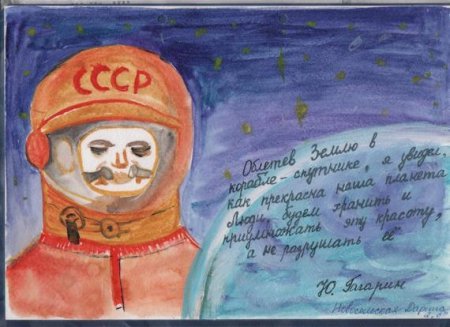 СССР
Облетев Землю в
корабле-спутнике, я увидел,
как прекрасна наша планета
Люди, будем хранить и
приумножать эту красоту,
а не разрушать её"
Ю. Гагарин
Дарья